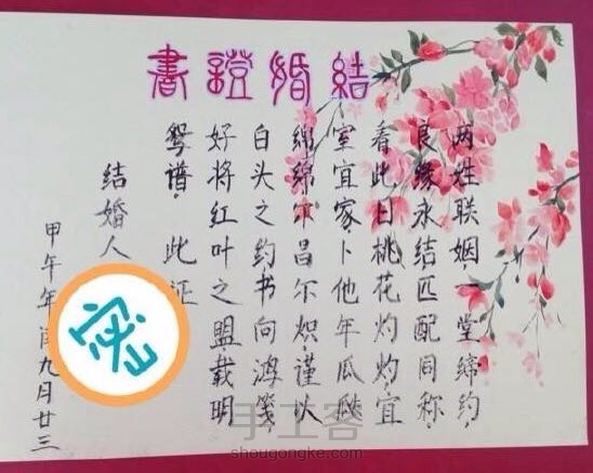 結婚證書
两姓联姻，一堂缔约，
良缘永结，匹配同称，
看此日桃花灼灼，宜
室宜家，卜他年瓜瓞
绵绵，尔昌尔炽，谨以
白头之约，书向鸿笺，
好将红叶之盟，载明
鸳谱，此证
结婚人
甲午年闰九月廿三
密
手工客
shougongke.com